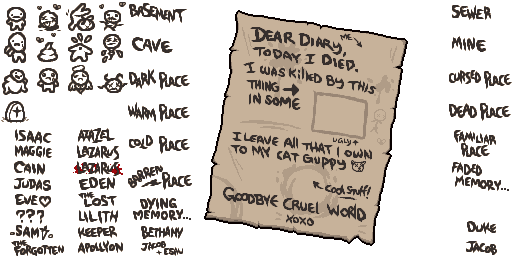 BASEMENT
CAVE
DARK PLACE
WARM PLACE
COLD PLACE
BARREN PLACE
DYING
MEMORY...
BETHANY
JACOB
+ ESAU
ISAAC
MAGGIE
CAIN
JUDAS
EVE♡
???
SAMS
THE
FORGOTTEN
AZAZEL
LAZARUS
LAZARUS
EDEN
THE
LOST
LILITH
KEEPER
APOLLYON
DEAR DIARY,
ME
TODAY I DIED.
I WAS KILLED BY THIS
THING →
IN SOME
UGLY
I LEAVE ALL THAT I OWN
TO MY CAT GUPPY
COOL STUFF!
GOODBYE CRUEL WORLD
XOXO
SEWER
MINE
CURSED PLACE
DEAD PLACE
FAMILIAR
PLACE
FADED
MEMORY...
DUKE
JACOB